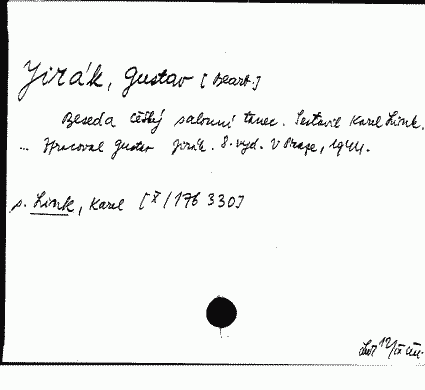 Jirák, Gustav [Bearb.]
Beseda český salonní tanec. Sestavil Karel Link.
... Zpracoval Gustav Jirák. 8. vyd. V Praze, 1944.
s. Link, Karel [X/176 330]